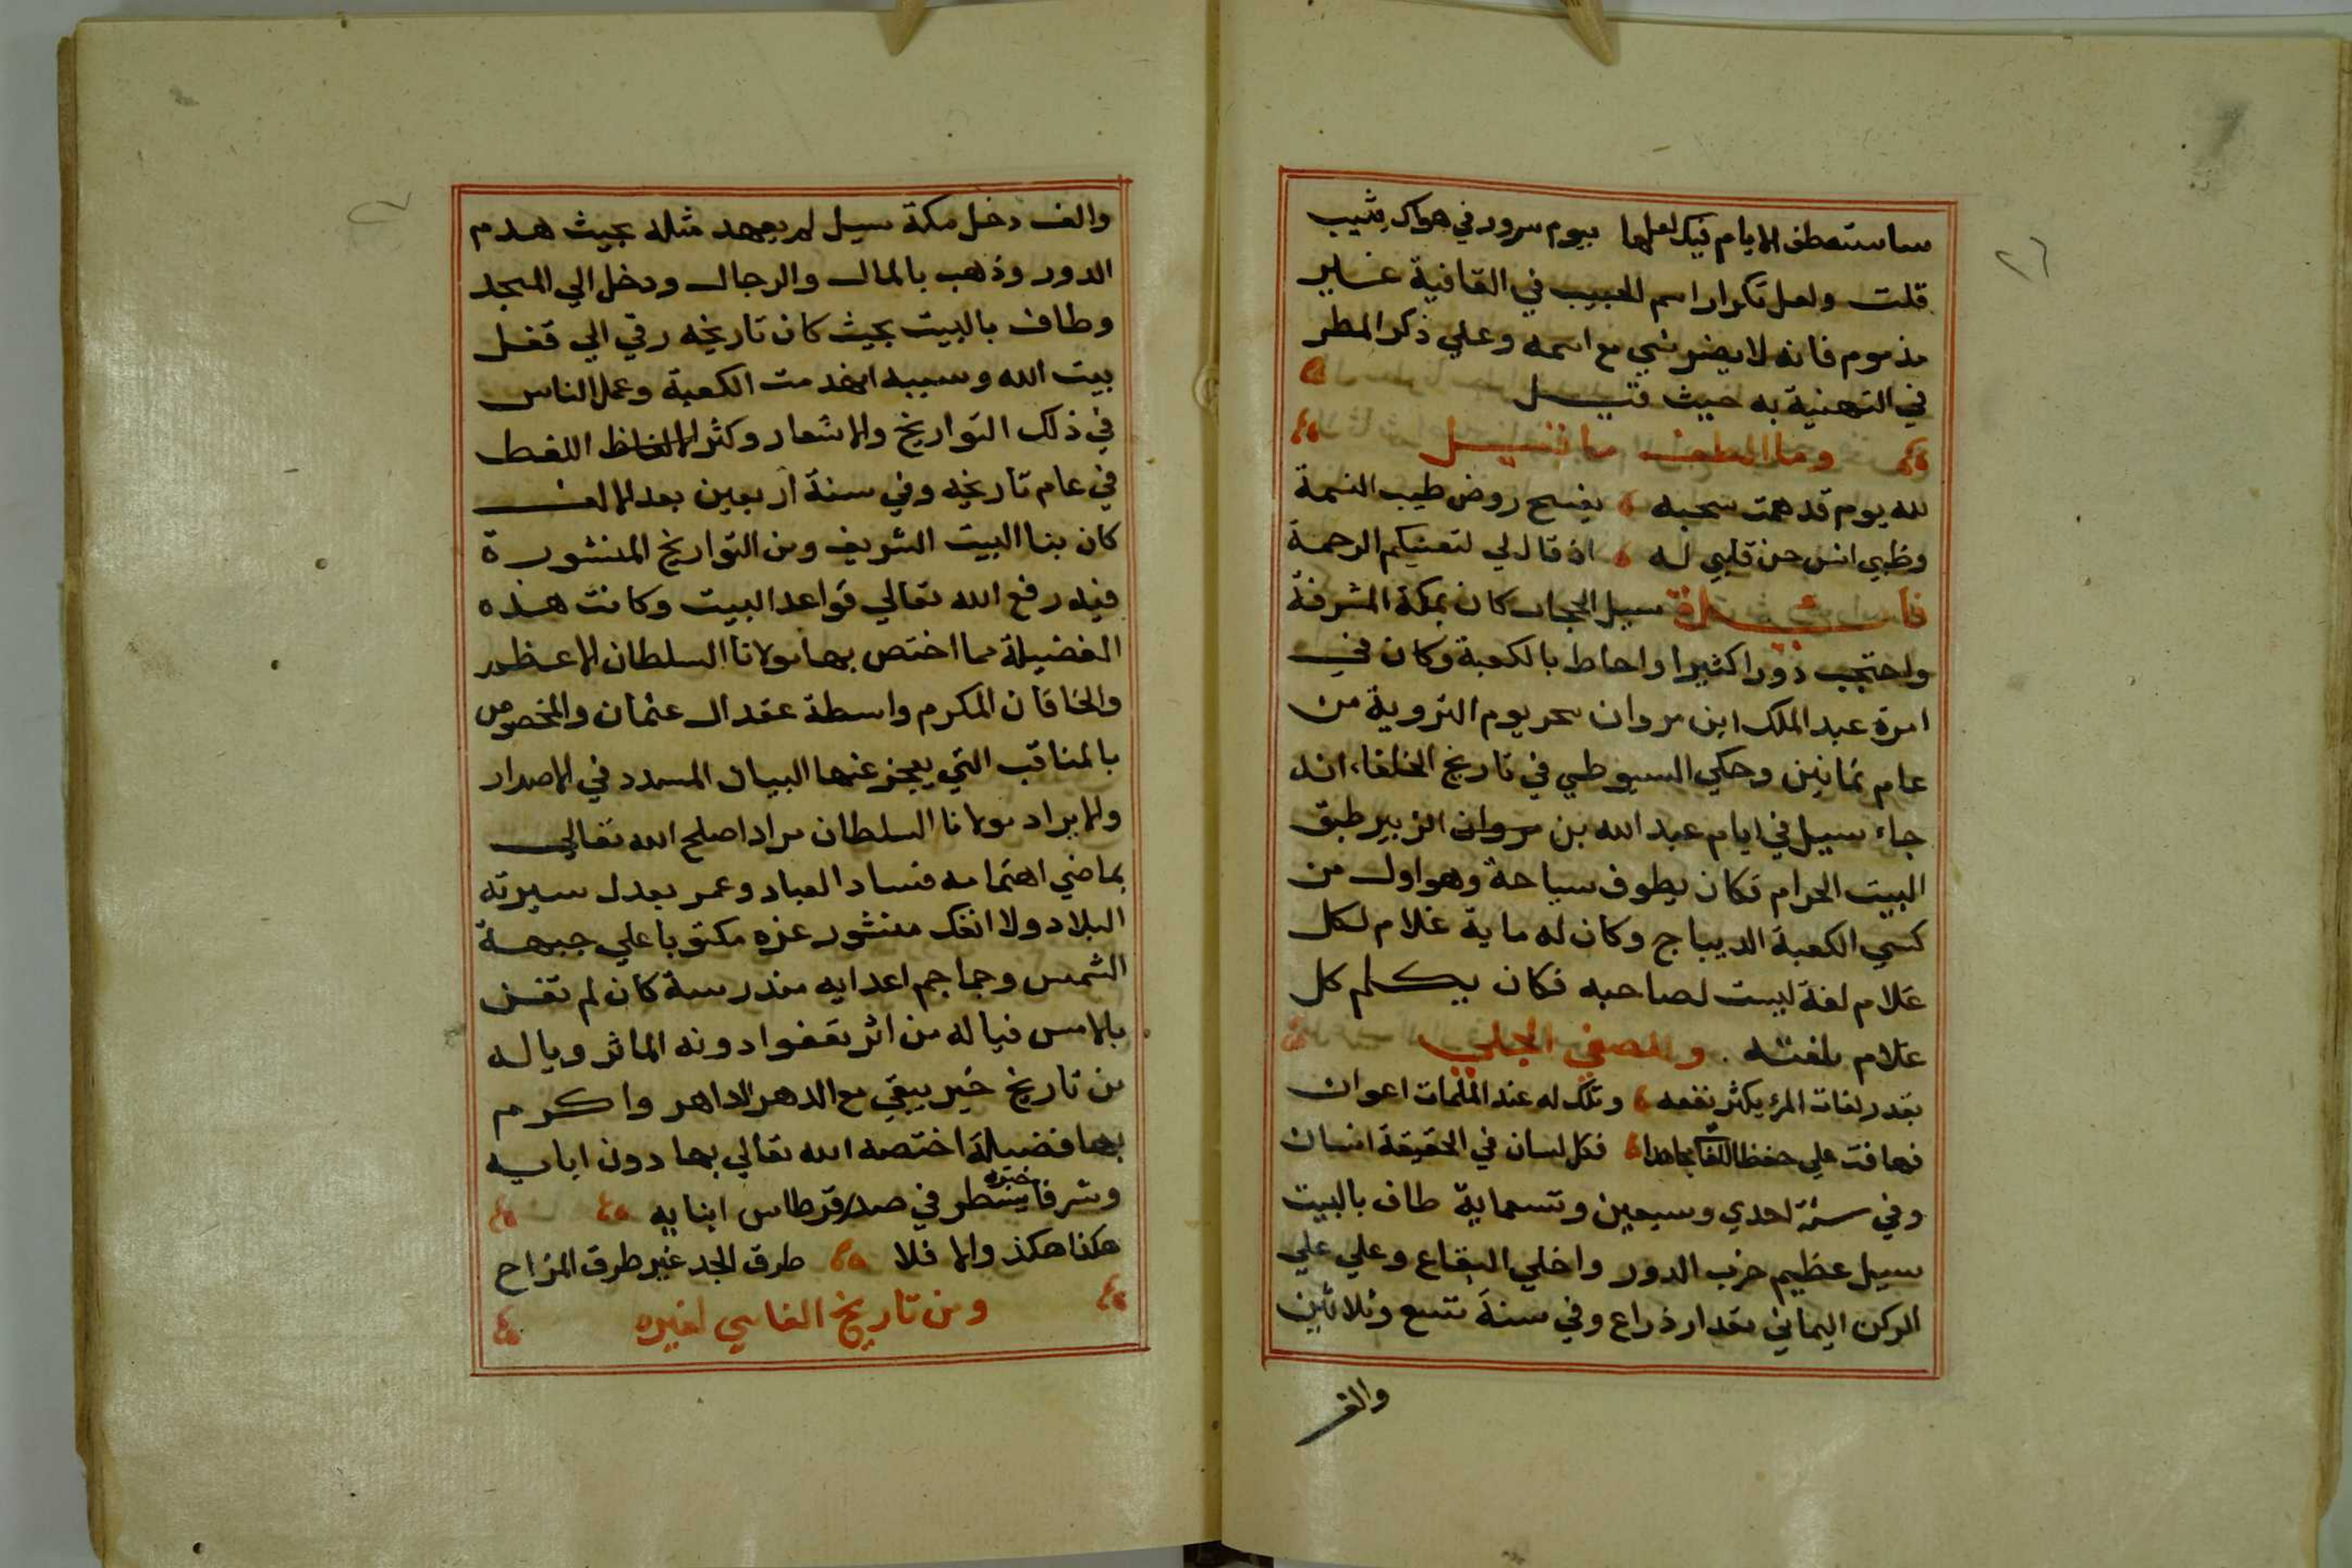 ٢٦
ساستعطف الايام فيك لعلها بيوم سرور في هواك يثيب
قلت ولعل تكرار اسم الحبيب في القافية غير
مذموم فانه لا يضر شي مع اسمه وعلي ذكر المطر
في التهنية به حيث قيل
وما الطف ما قيل
لله يوم قد همت سحبه يفسح روض طيب النسمة
وظبي انس حن قلبي له اذ قال لي لتهنيكم الرحمة
فائدة سيل الجحاف كان بمكة المشرفة
واحتجب دورا كثيرا واحاط بالكعبة وكان في
امرة عبد الملك ابن مروان سحر يوم التروية من
عام ثمانين وحكي السيوطي في تاريخ الخلفاء انه
جاء سيل في ايام عبد الله بن مروان الزبير طبق
البيت الحرام فكان يطوف سباحة وهو اول من
كسي الكعبة الديباج وكان له ماية غلام لكل
غلام لغة ليست لصاحبه فكان يكلم كل
غلام بلغته . وللصفي الحلي
بقدر لغات المرء يكثر نفعه وتلك له عند الملمات اعوان
فهافت علي حفظ اللغات مجاهدا فكل لسان في الحقيقة انسان
وفي سنة احدي وسبعين وتسعماية طاف بالبيت
سيل عظيم خرب الدور واخلي البقاع وعلي علي
الركن اليماني مقدار ذراع وفي سنة تسع وثلاثين
والف
٢٧
والف دخل مكة سيل لم يعهد مثله بحيث هدم
الدور وذهب بالمال والرجال ودخل الي المسجد
وطاف بالبيت بحيث كان تاريخه رقي الي قفل
بيت الله وسببه انهدمت الكعبة وعمل الناس
في ذلك التواريخ والاشعار وكثر الالفاظ اللغط
في عام تاريخه وفي سنة اربعين بعد الالف
كان بنا البيت الشريف ومن التواريخ المنشورة
فيه رفع الله تعالي قواعد البيت وكانت هذه
الفضيلة مما اختص بها مولانا السلطان الاعظم
والخاقان المكرم واسطة عقد ال عثمان والمخصوص
بالمناقب التي يعجز عنها البيان المسدد في الاصدار
والايراد مولانا السلطان مراد اصلح الله تعالي
بماضي اهتمامه فساد العباد وعمر بعدل سيرته
البلاد ولا انفك منشور عزه مكتوبا علي جبهة
الشمس وجماجم اعدايه مندرسة كان لم تغن
بالامس فياله من اثر تقفوا دونه الماثر وياله
من تاريخ خير يبقي مع الدهر الداهر واكرم
بها فضيلة اختصه الله تعالي بها دون ابايه
وشرفا يسطر خبره في صدر قرطاس ابنايه
هكذا هكذ والا فلا طرق الجد غير طرق المزاح
ومن تاريخ الفاسي لغيره